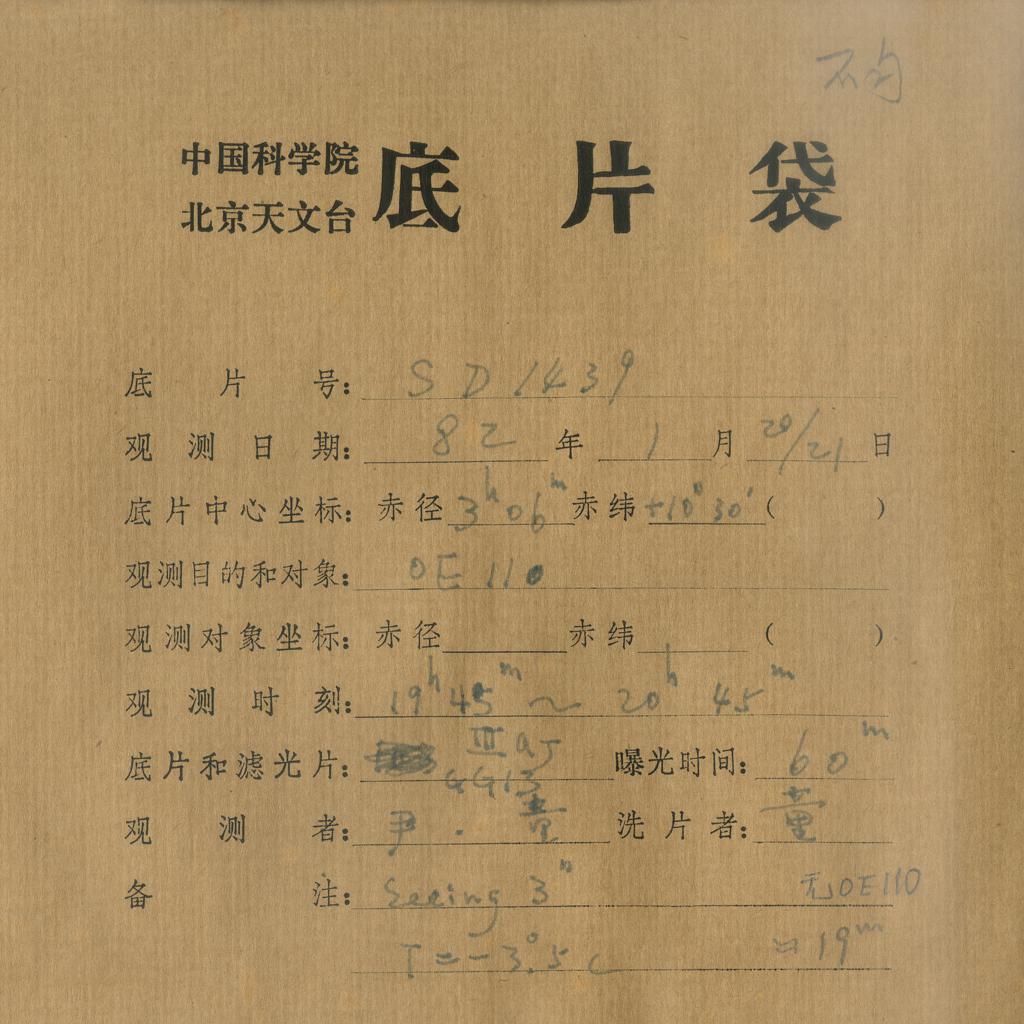 不匀
中国科学院
北京天文台
底片袋
底片号: SD1439
观测日期: 82年1月20/21日
底片中心坐标: 赤径3h06m赤纬+10°30′( )
观测目的和对象: OE110
观测对象坐标: 赤径 赤纬 ( )
观测时刻: 19h45m~20h45m
底片和滤光片: IIIaJ 曝光时间: 60m
GG13
观测者: 尹·董 洗片者: 董
备注: Seeing 3″ 无OE110
T=-3°.5C ≈19m